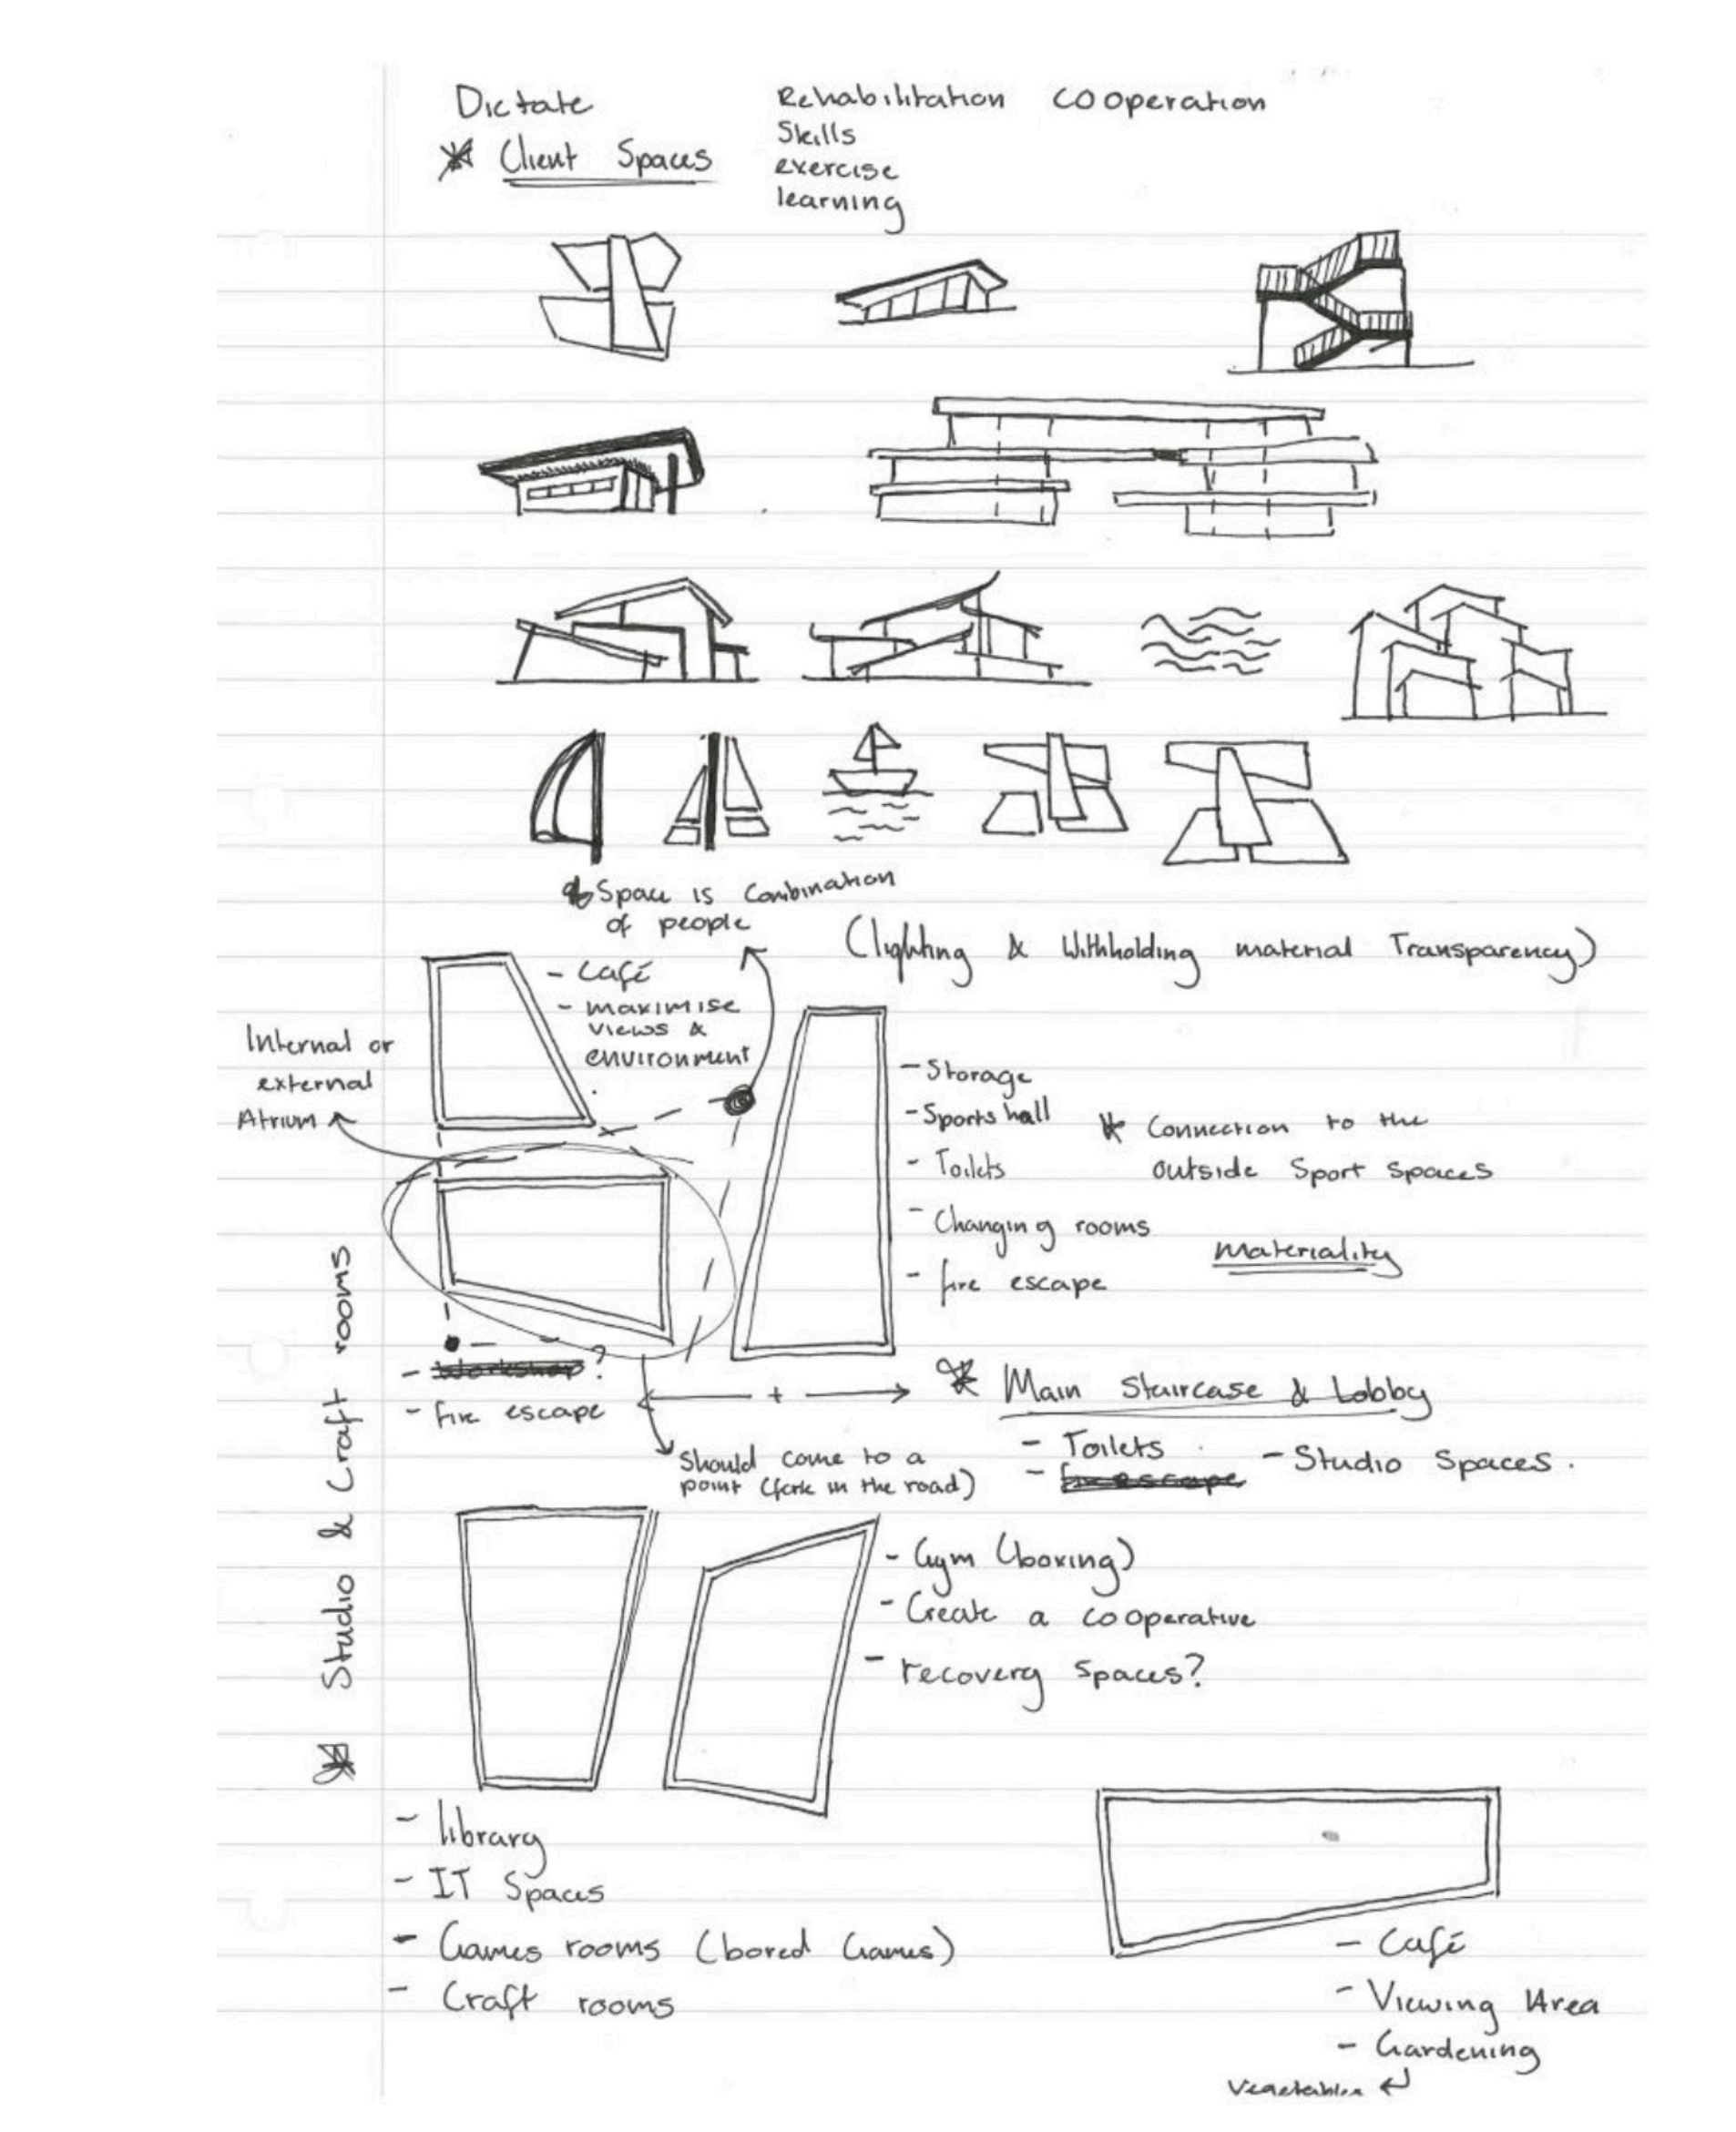 Dictate
* Client Spaces
Rehabilitation
Skills
exercise
learning
cooperation
* Space is Combination
of people
(lighting & Withholding material Transparency)
- Café
- maximise
views &
environment
Internal or
external
Atrium
- Storage
- Sports hall
- Toilets
- Changing rooms
- fire escape
* Connection to the
outside Sport spaces
Materiality
- Workshop?
- fire escape
+
* Main Staircase & Lobby
- Toilets
- fire escape
- Studio Spaces.
Should come to a
point (fork in the road)
* Studio & Craft rooms
- Gym (boxing)
- Create a cooperative
- recovery spaces?
- library
- IT Spaces
- Games rooms (bored Games)
- Craft rooms
- Café
- Viewing Area
- Gardening
Vegetables